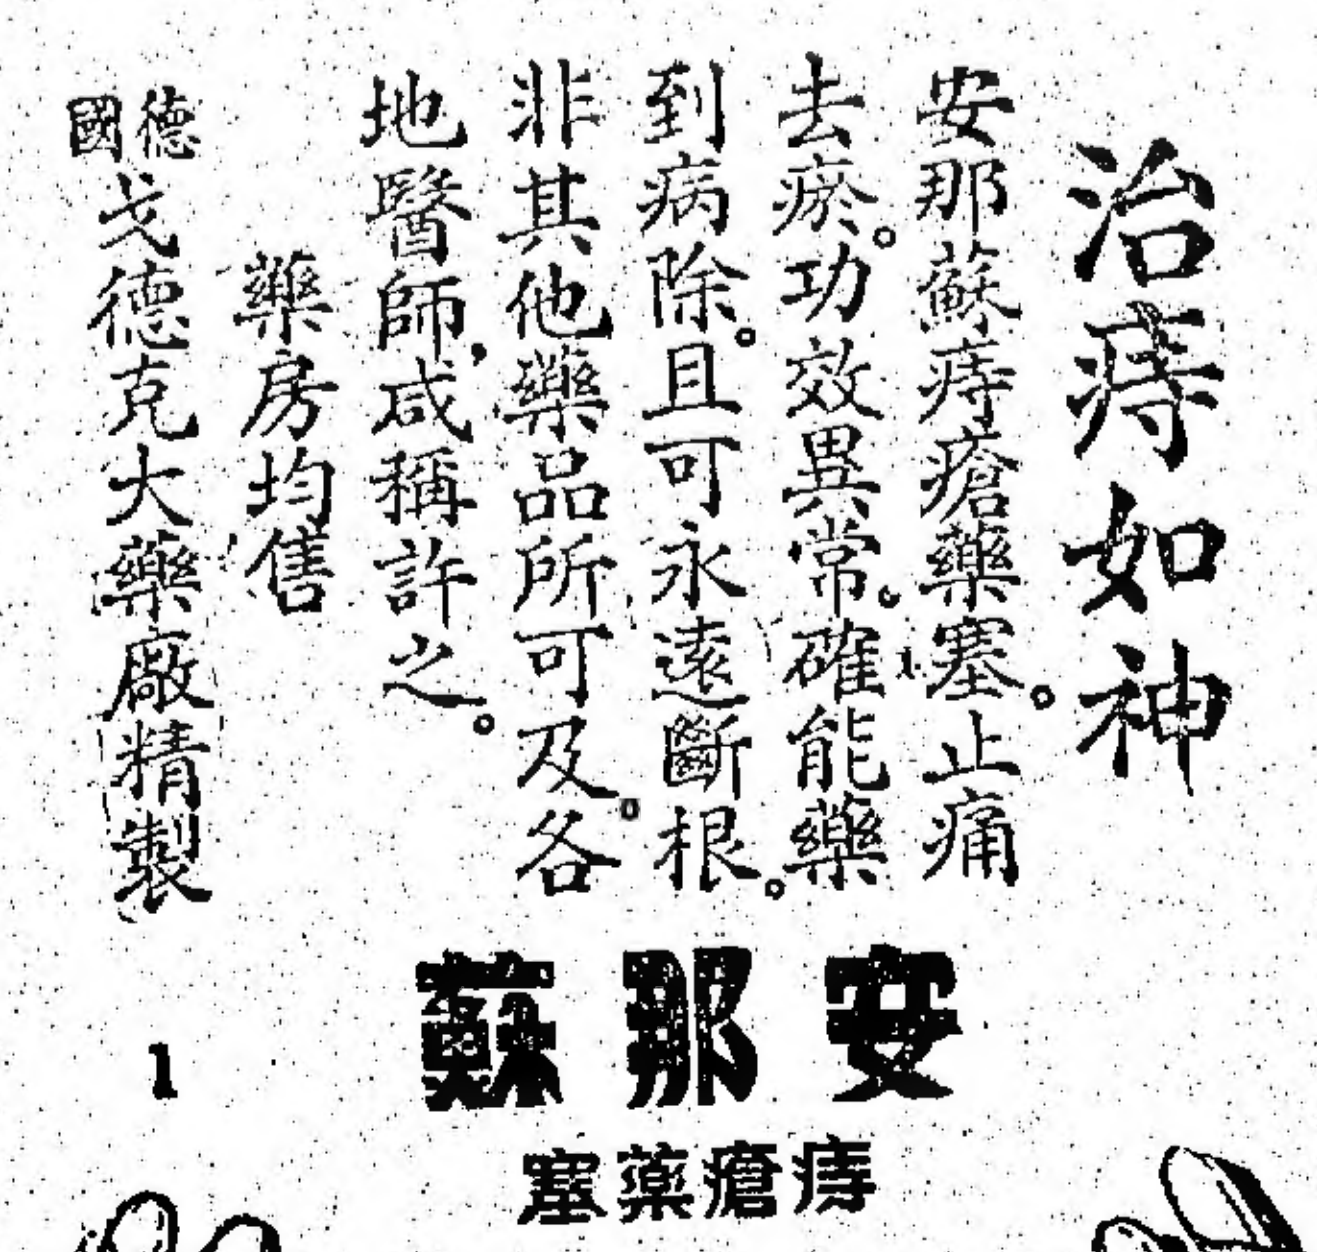 治痔如神
安那蘇痔瘡藥塞。止痛
去瘀。功效異常。確能藥
到病除。且可永遠斷根。
非其他藥品所可及。各
地醫師,咸稱許之。
藥房均售
德國戈德克大藥廠精製
安那蘇
痔瘡藥塞
1